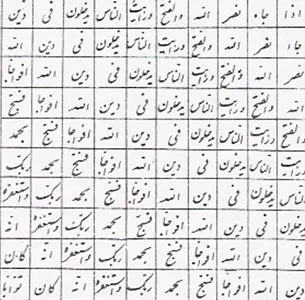 اذا جاء نصر الله والفتح ورايت الناس يدخلون فى دين
جاء نصر الله والفتح ورايت الناس يدخلون فى دين الله
نصر الله والفتح ورايت الناس يدخلون فى دين الله افواجا
الله والفتح ورايت الناس يدخلون فى دين الله افواجا فسبح
والفتح ورايت الناس يدخلون فى دين الله افواجا فسبح بحمد
ورايت الناس يدخلون فى دين الله افواجا فسبح بحمد ربك
الناس يدخلون فى دين الله افواجا فسبح بحمد ربك واستغفره
يدخلون فى دين الله افواجا فسبح بحمد ربك واستغفره انه
فى دين الله افواجا فسبح بحمد ربك واستغفره انه كان
دين الله افواجا فسبح بحمد ربك واستغفره انه كان توابا